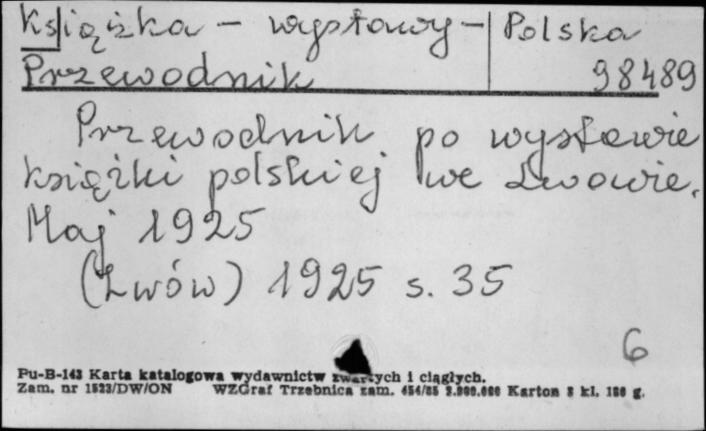 Książka – wystawy – Polska
Przewodnik 98489
Przewodnik po wystawie
książki polskiej we Lwowie.
Maj 1925
(Lwów) 1925 s. 35
6
Pu-B-143 Karta katalogowa wydawnictw zwartych i ciągłych.
Zam. nr 1523/DW/ON WZGraf Trzebnica zam. 454/85 Karton kl. g.